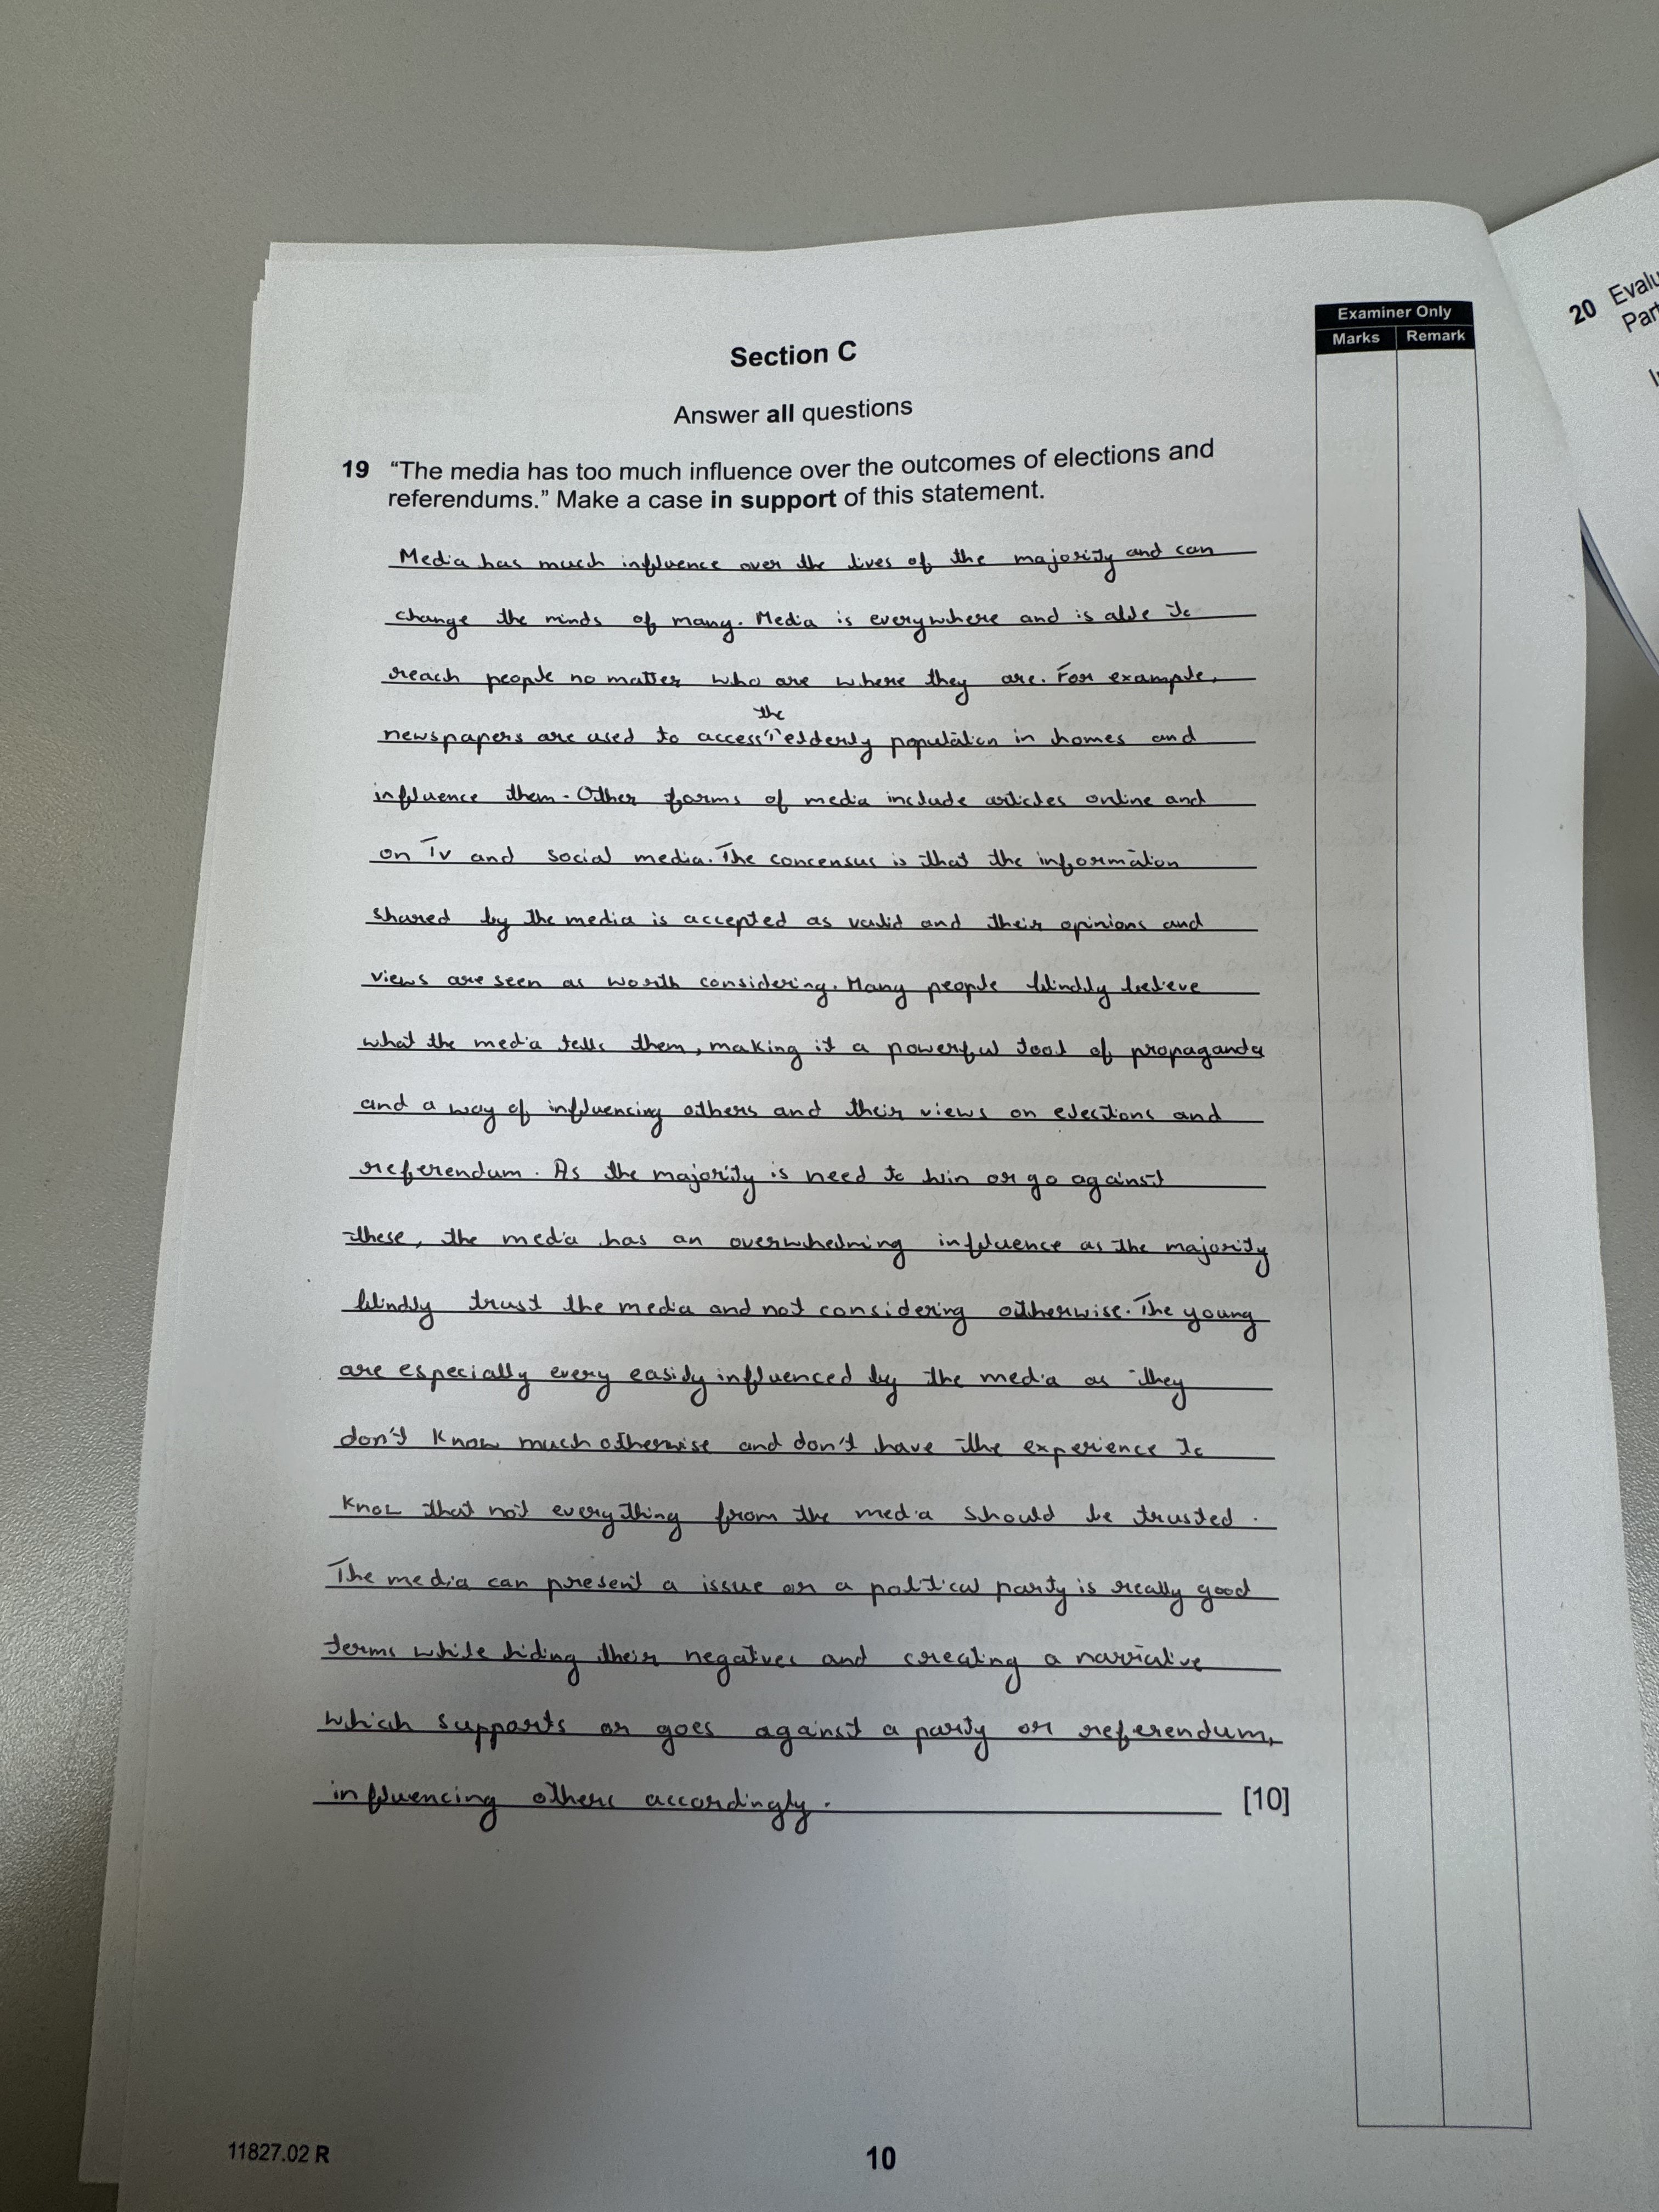 Examiner Only
Marks Remark
20 Evalu
Par
Section C
Answer all questions
19 “The media has too much influence over the outcomes of elections and
referendums.” Make a case in support of this statement.
Media has much influence over the lives of the majority and can
change the minds of many. Media is everywhere and is able to
reach people no matter who are where they are. For example,
the
newspapers are used to access elderly population in homes and
influence them. Other forms of media include articles online and
on TV and social media. The concensus is that the information
shared by the media is accepted as valid and their opinions and
views are seen as worth considering. Many people blindly believe
what the media tells them, making it a powerful tool of propaganda
and a way of influencing others and their views on elections and
referendum. As the majority is need to win or go against
these, the media has an overwhelming influence as the majority
blindly trust the media and not considering otherwise. The young
are especially every easily influenced by the media as they
don't know much otherwise and don't have the experience to
know that not everything from the media should be trusted.
The media can present a issue or a political party is really good
terms while hiding their negatives and creating a narrative
which supports or goes against a party or referendum,
influencing others accordingly. [10]
11827.02 R
10